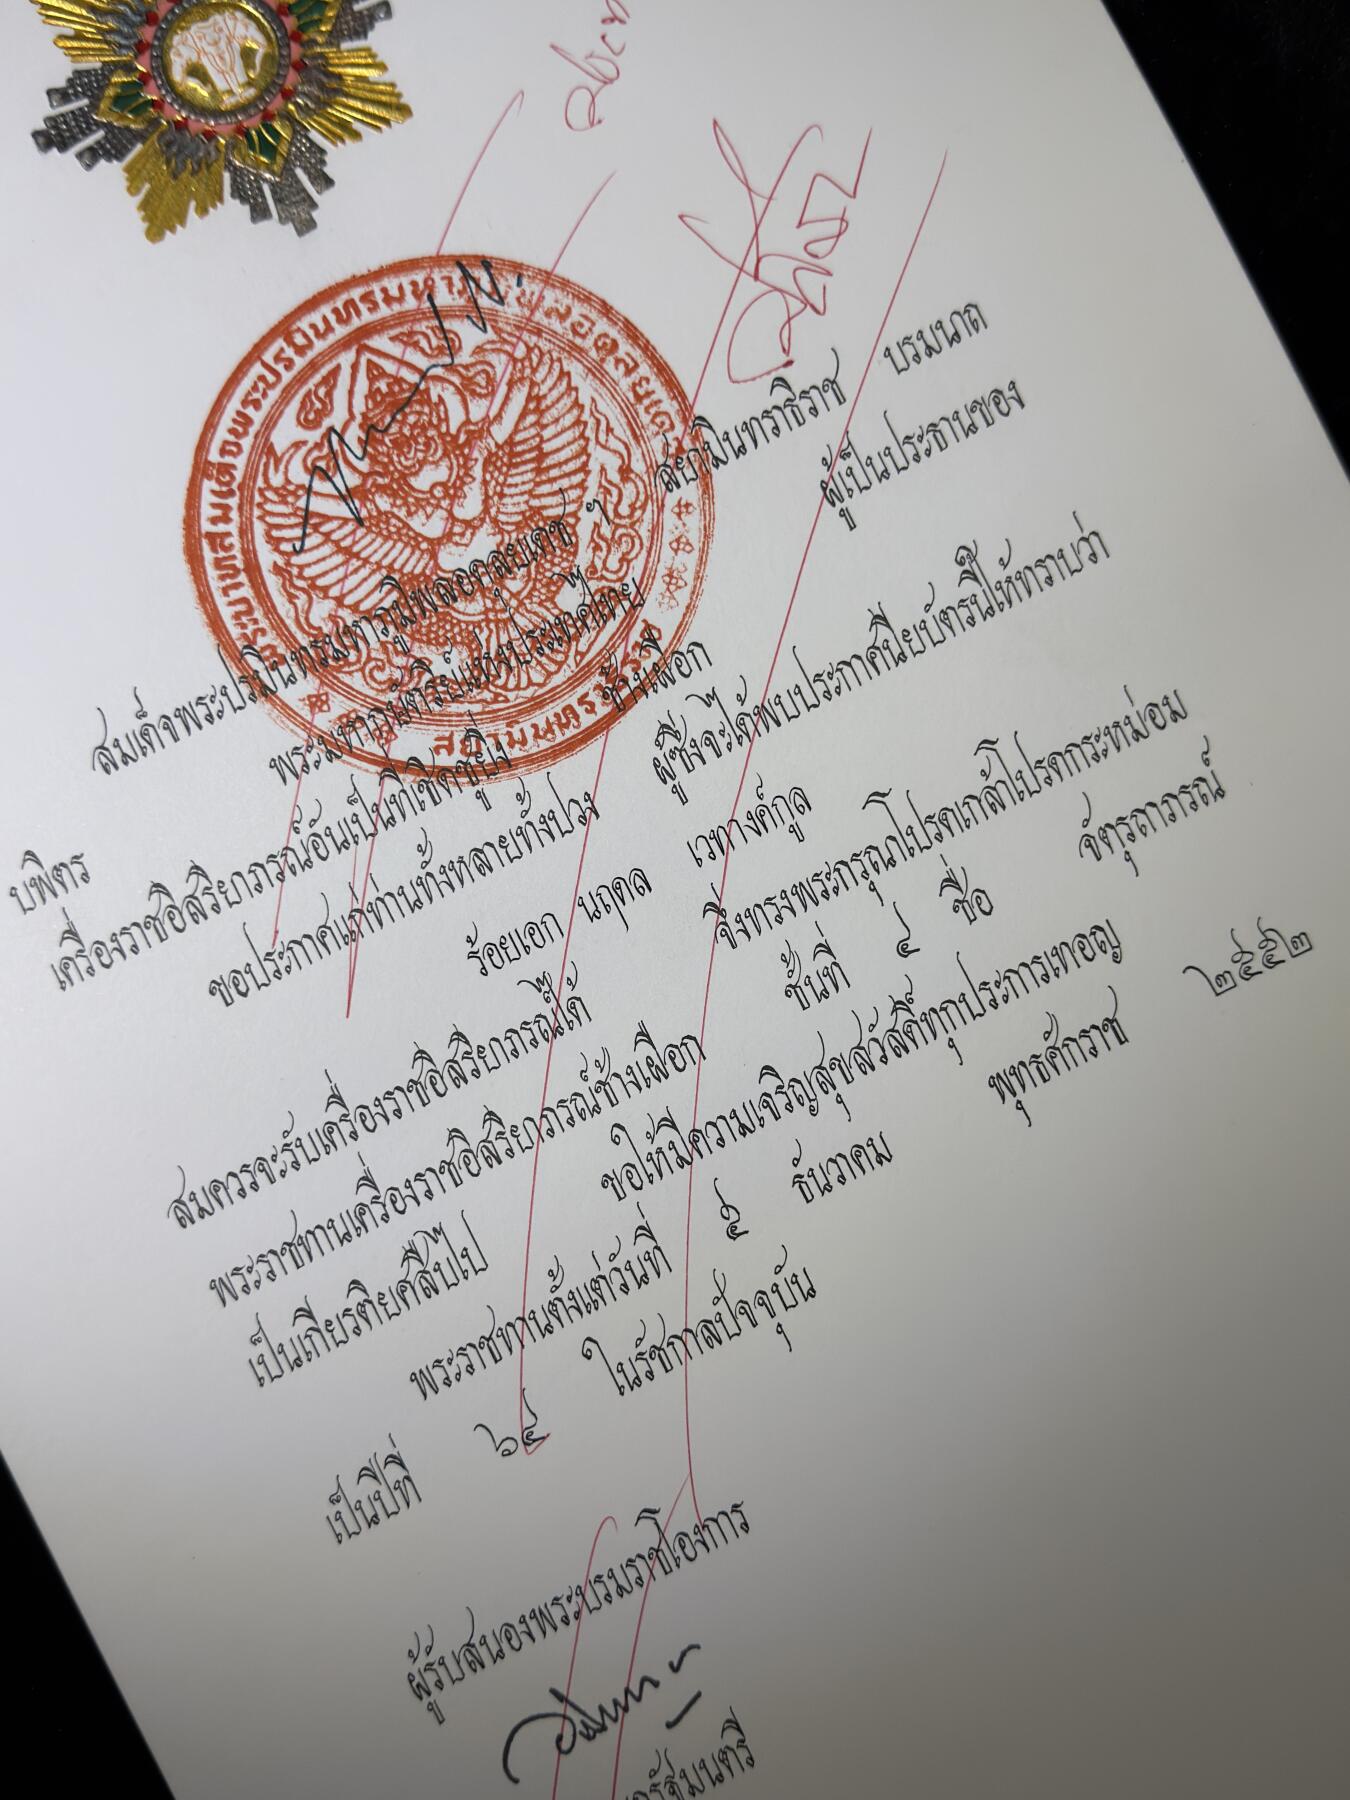 สมเด็จพระปรมินทรมหาภูมิพลอดุลยเดช ฯ สยามินทราธิราช บรมนาถ
บพิตร พระมหากษัตริย์แห่งประเทศไทย ผู้เป็นประธานของ
เครื่องราชอิสริยาภรณ์อันเป็นที่เชิดชูยิ่ง ช้างเผือก
ขอประกาศแก่ท่านทั้งหลายทั้งปวง ผู้ซึ่งจะได้พบประกาศนียบัตรนี้ให้ทราบว่า
ร้อยเอก นฤดล เวทางค์กูล
สมควรจะรับเครื่องราชอิสริยาภรณ์ได้ จึงทรงพระกรุณาโปรดเกล้าโปรดกระหม่อม
พระราชทานเครื่องราชอิสริยาภรณ์ช้างเผือก ชั้นที่ ๔ ชื่อ จัตุรถาภรณ์
เป็นเกียรติยศสืบไป ขอให้มีความเจริญสุขสวัสดิ์ทุกประการเทอญ
พระราชทานตั้งแต่วันที่ ๕ ธันวาคม พุทธศักราช ๒๕๕๒
เป็นปีที่ ๖๔ ในรัชกาลปัจจุบัน
ผู้รับสนองพระบรมราชโองการ